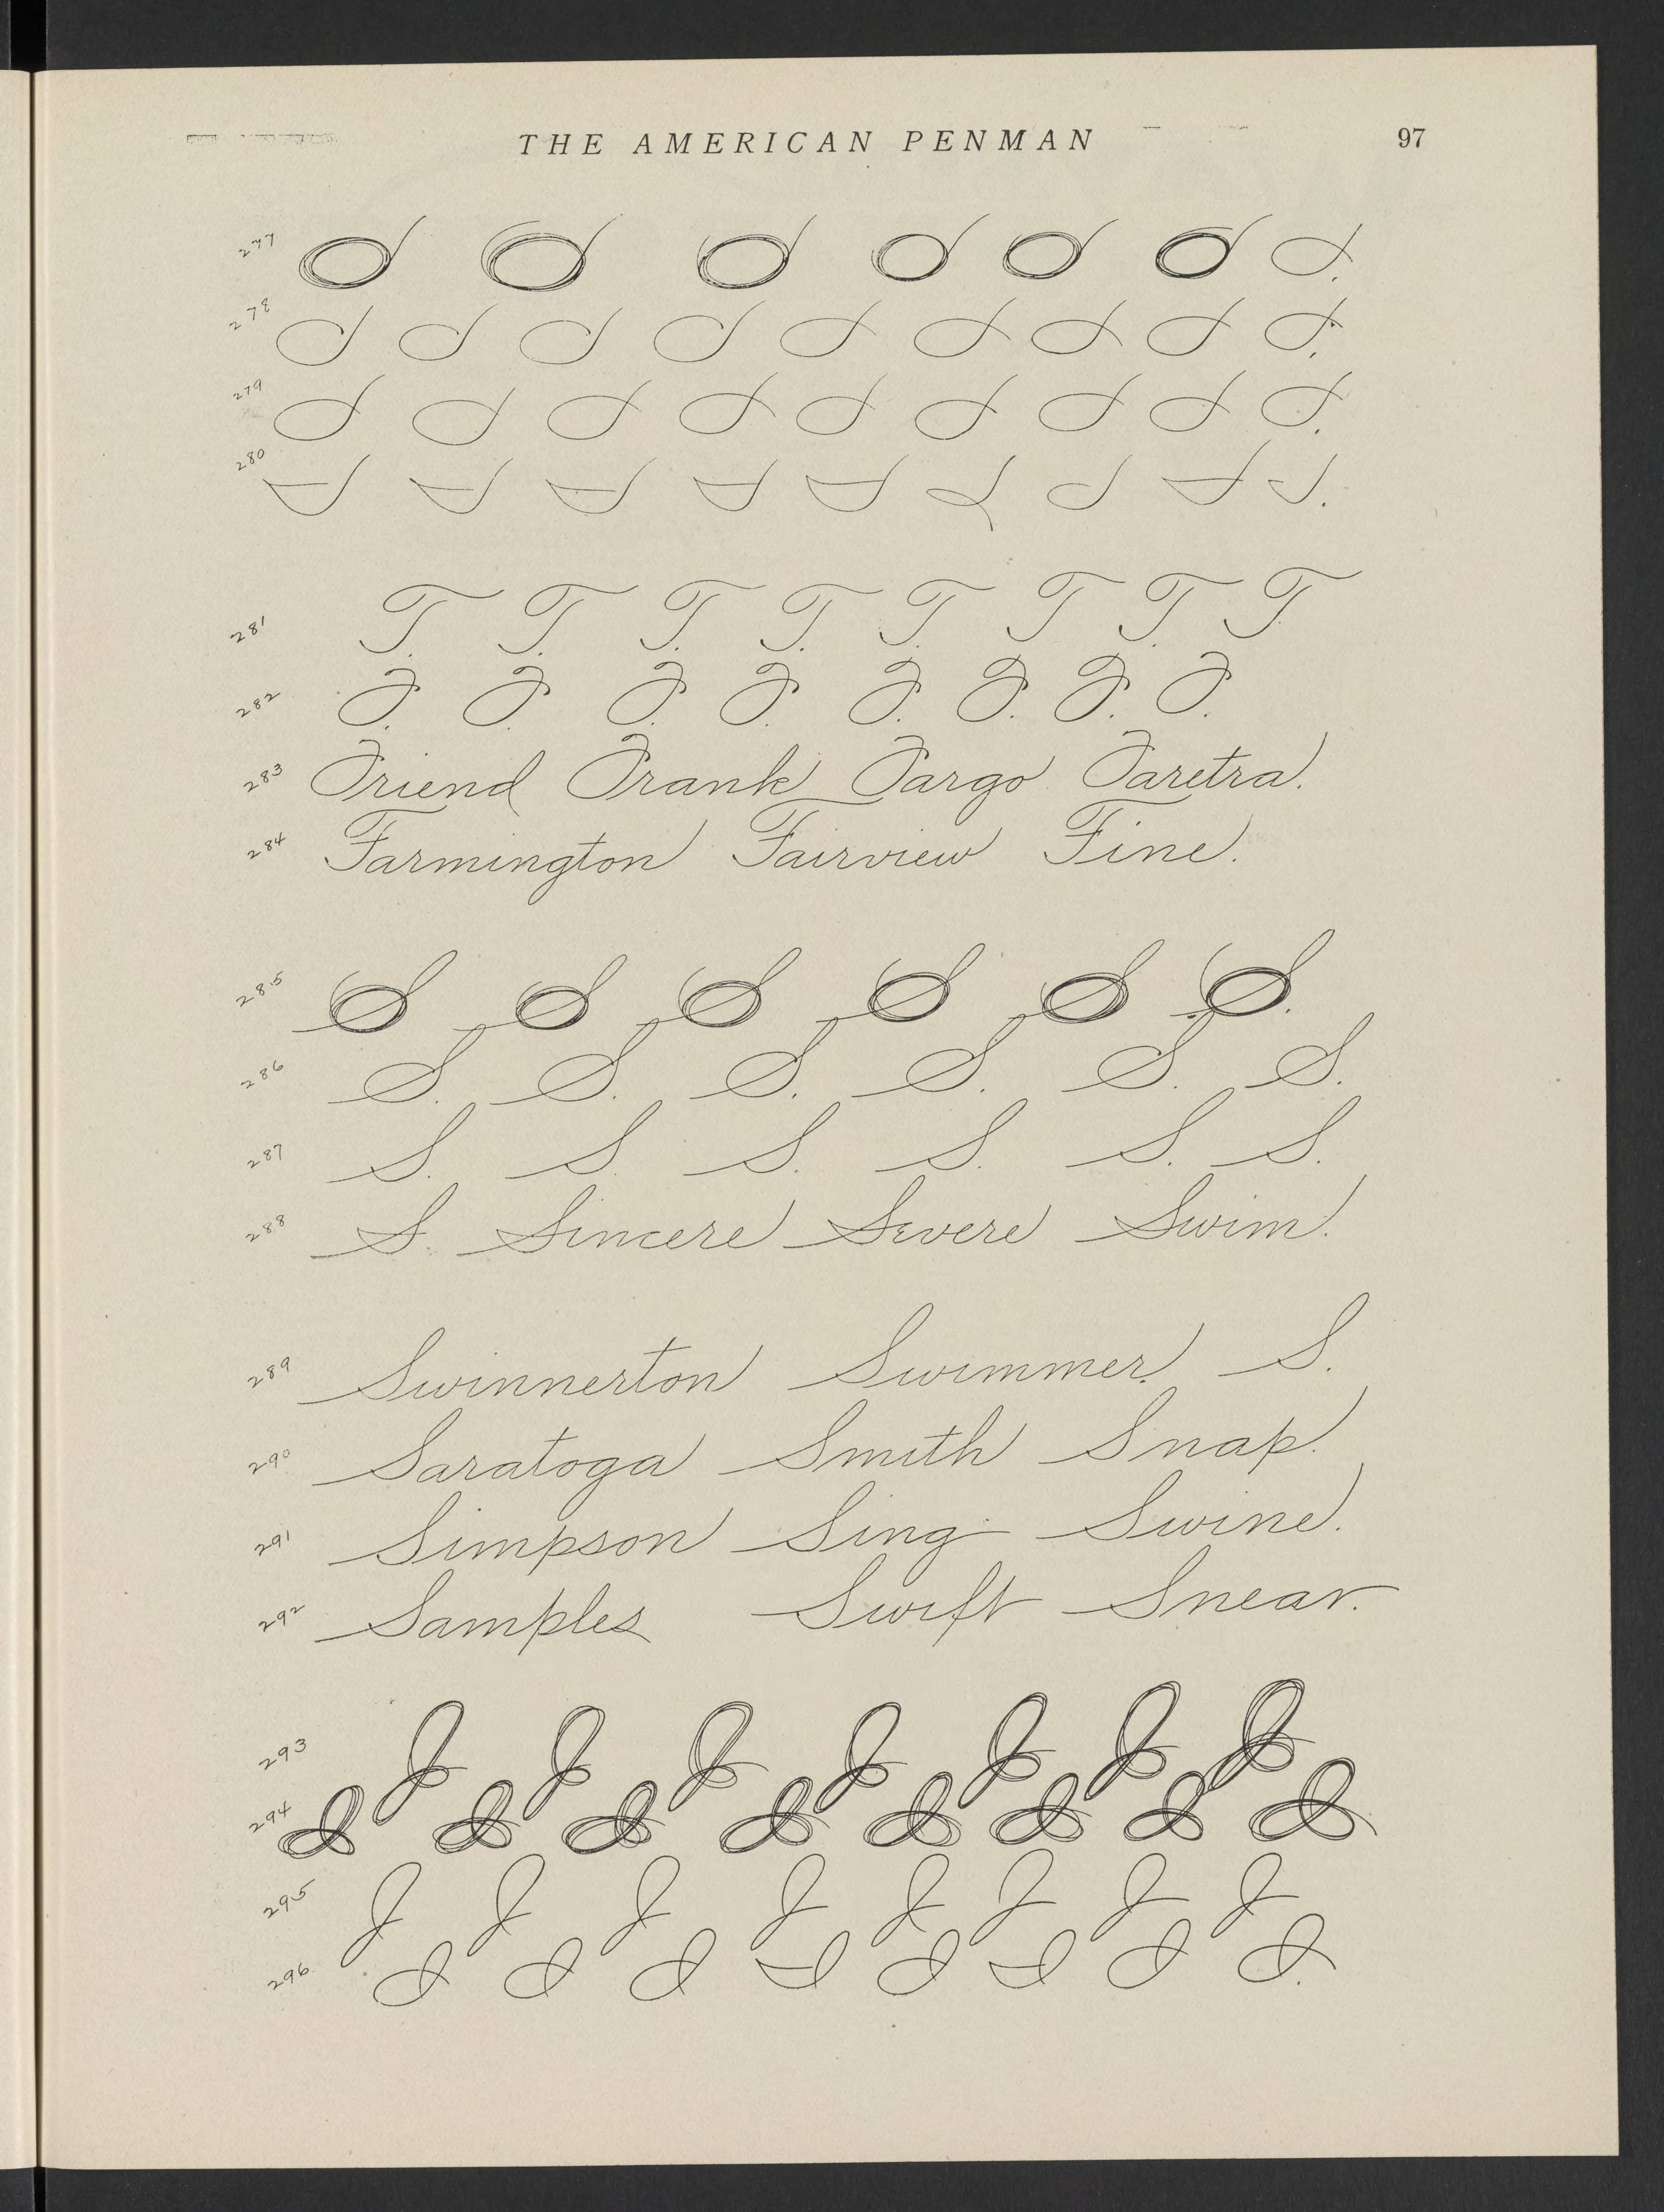 THE AMERICAN PENMAN 97
277
278
279
280
281 T. T. T. T. T. T T. T
282 F. F. F. F. F. F. F. F.
283 Friend Frank Fargo Faretra.
284 Farmington Fairview Fine.
285
286 S. S. S. S. S. S.
287 S. S. S. S. S. S.
288 S. Sincere Severe Swim.
289 Swinnerton Swimmer. S.
290 Saratoga Smith Snap.
291 Simpson Sing Swine.
292 Samples Swift Snear.
293
294
295
296